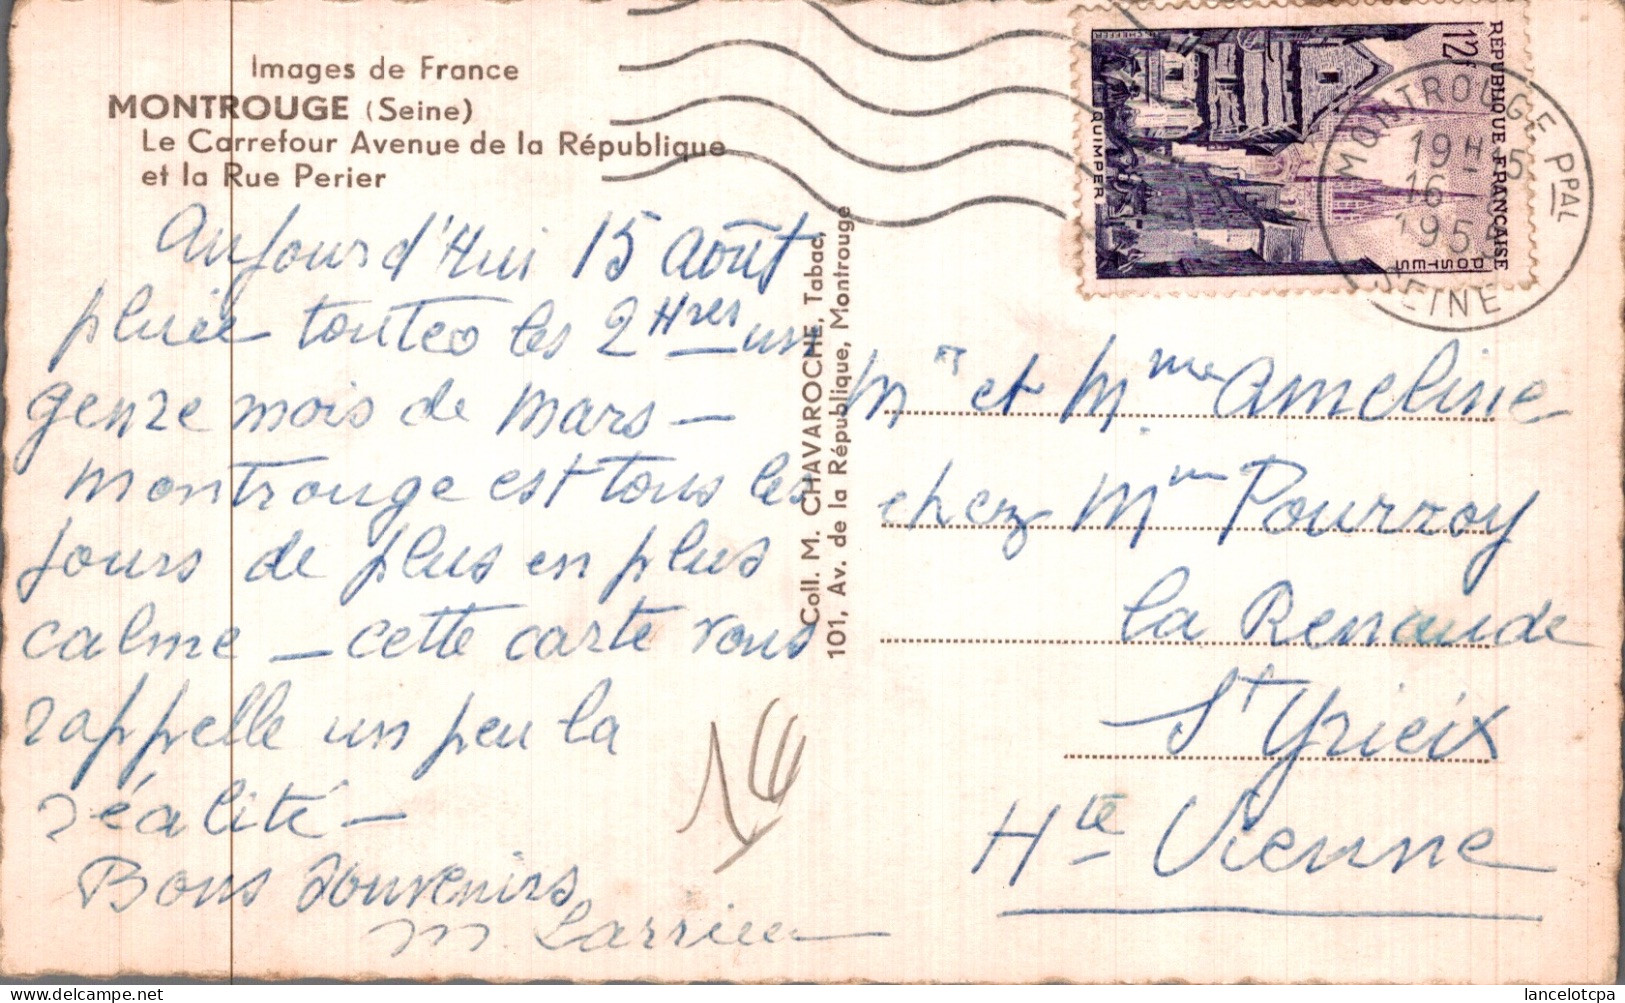 Images de France
MONTROUGE (Seine)
Le Carrefour Avenue de la République
et la Rue Perier
Aujourd'Hui 15 Août
pluie toutes les 2 Hres un
genre mois de Mars —
Montrouge est tous les
jours de plus en plus
calme — cette carte vous
rappelle un peu la
réalité —
Bons Souvenirs
M Larrieu
Coll. M. CHAVAROCHE, Tabac,
101, Av. de la République, Montrouge
RÉPUBLIQUE FRANÇAISE
12F
POSTES
QUIMPER
MONTROUGE PPAL
19H15
16 -
195
SEINE
Mr et Mme Ameline
chez Mme Pourroy
la Renaude
St Yrieix
Hte Vienne
lancelotcpa